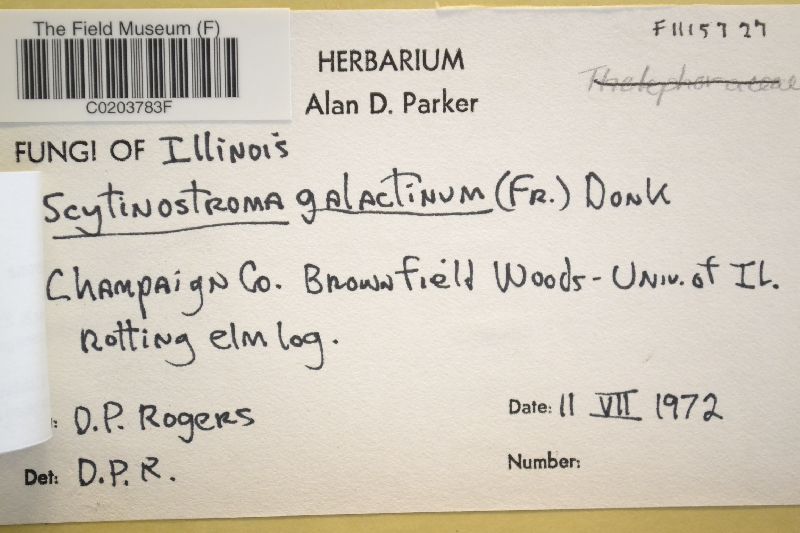 The Field Museum (F)
C0203783F
F1115727
HERBARIUM
Alan D. Parker
Thelephoraceae
FUNGI OF Illinois
Scytinostroma galactinum (Fr.) Donk
Champaign Co. Brownfield Woods - Univ. of Il.
Rotting elm log.
: D.P. Rogers
Date: 11 VII 1972
Det: D.P.R.
Number: